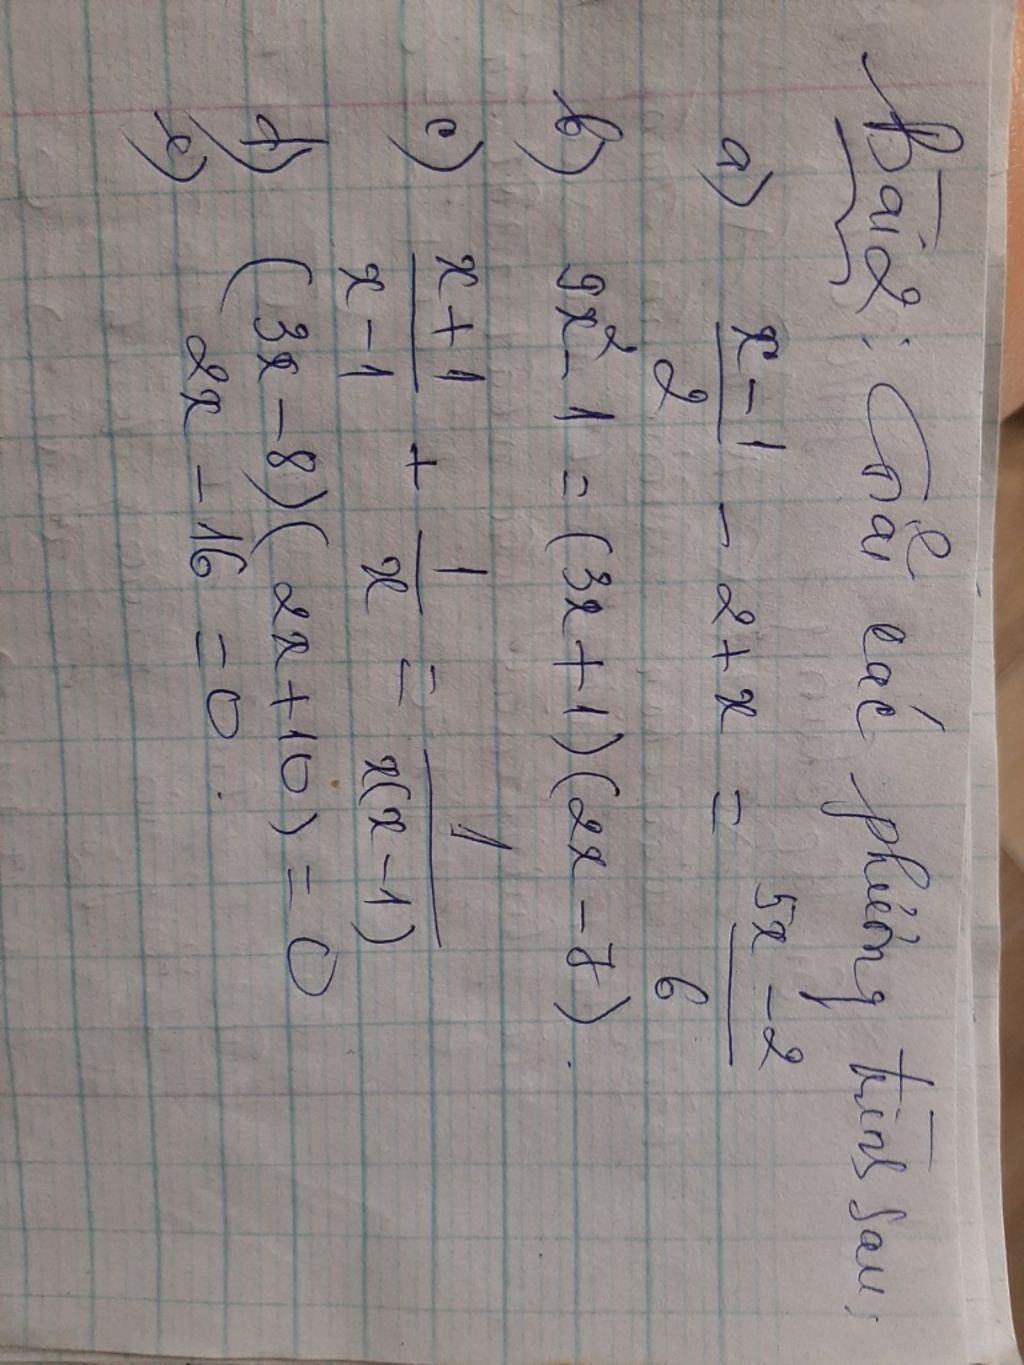 Bài 2: Giải các phương trình sau:
a) x-1/2 - 2+x = 5x-2/6
b) 9x²-1 = (3x+1)(2x-7).
c) x+1/x-1 + 1/x = 1/x(x-1)
d) (3x-8)(2x+10) = 0
e) 2x - 16 = 0.